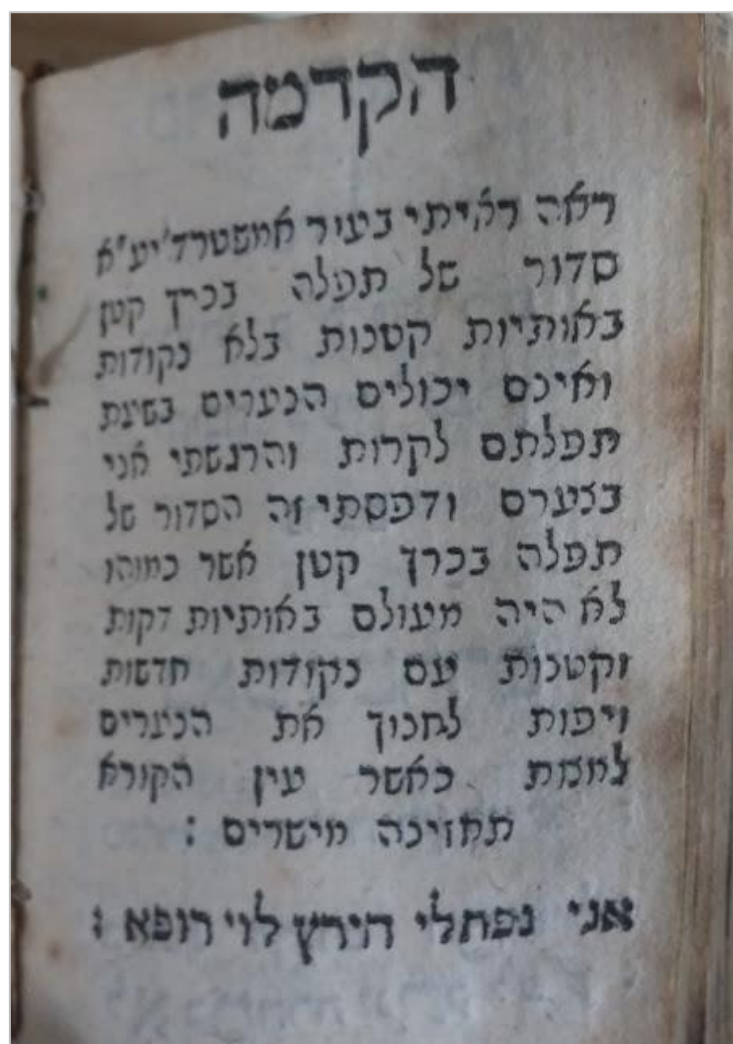 הקדמה
ראה ראיתי בעיר אמשטרד' יע"א
סדור של תפלה בכרך קטן
באותיות קטנות בלא נקודות
ואינם יכולים הנערים בשעת
תפלתם לקרות והרגשתי אני
בצערם ודפסתי זה הסדור של
תפלה בכרך קטן אשר כמוהו
לא היה מעולם באותיות דקות
וקטנות עם נקודות חדשות
ויפות לחנוך את הנערים
למען כאשר עין הקורא
תחזינה מישרים :
אני נפתלי הירץ לוי רופא :